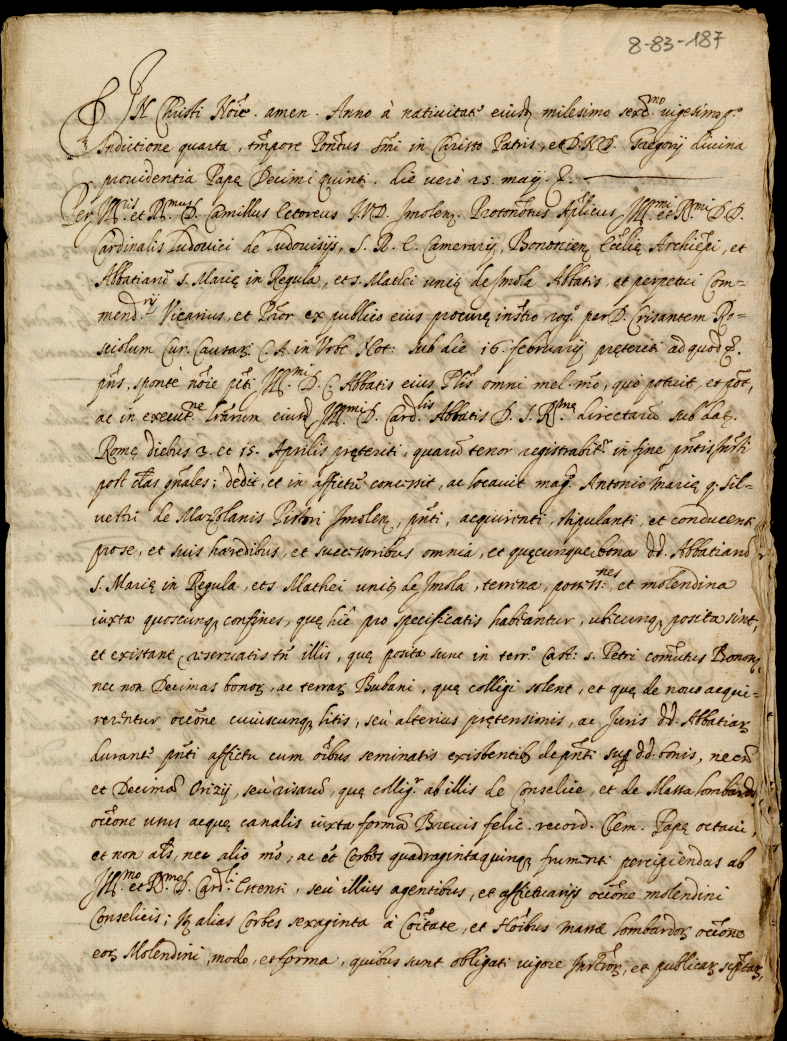 8-83-187
IN Christi Noīe. amen. Anno à nativitate eiusd. milesimo sexc.mo vigesimo p.o
Indictione quarta, tempore Pontus Smi in Christo Patris, et D.N.D. Gregorij divina
providentia Papę Decimi quinti. die verò 25. maij. &.
Per Ill.ris et R.mus D. Camillus Cetoreus IVD. Imolen. Protonotus Aplicus Ill.mi et R.mi DD.
Cardinalis Ludovici de Ludovisijs, S. R. E. Camerarij, Bononien. Ecclię Archiepi, et
Abbatiarū S. Marię in Regula, et S. Mathei unitę de Imola Abbatis, et perpetui Com=
mend.rij Vicarius, et Pror ex publico eius procurę instro rog.o per D. Crisantem Ro=
sciolum Cur. Causar. C. A. in Urbe Not: sub die 16. februarij pręteriti ad quod &.
pns, sponte noīe pti Ill.mi D. C. Abbatis eius Plis omni mel. mō, quo potuit, et pōt,
ac in execut.ne lrarum eiusd. Ill.mi D. Card.lis Abbatis D. S. R.mę directarū sub dat.
Romę diebus 3. et 15. Aprilis pręteriti, quarū tenor registrabit.r in fine pntis Instri
post clas gnales; dedit, et in affictū concessit, ac locavit mag. Antonio Marię q. Sil=
vestri de Mazolanis Pistori Imolen, pnti, acquirenti, stipulanti, et conducenti
pro se, et suis hæredibus, et successoribus omnia, et quęcunque bona dd. Abbatiarū
S. Marię in Regula, et S. Mathei unitę de Imola, terrena, poss.nes, et molendina
iuxta quoscunq. confines, quę hic pro specificatis habeantur, ubicunq. posita sint,
et existant reservatis tn illis, quę posita sunt in terr.o Cast: S. Petri comitatus Bonon.
nec non Decimas bonor. ac terrar. Bubani, quę colligi solent, et quę de novo acqui=
rerentur occōne cuiuscunq. litis, seù alterius prętensionis, ac Juris dd. Abbatiar.
durante pnti affictu cum oībus seminatis existentib. de pnti sup dd. bonis, nec nō
et Decimā Orizij, seù risarū, quę collig.r ab illis de Conselice, et de Massa lombardor.
occōne usus aequę canalis iuxta formā Brevis felic. record. Clem. Papę octavi,
et non als, nec alio mō; ac et Corbes quadragintaquinq. frumenti percipiendas ab
Ill.mo et R.mo D. Card.li Estensi, seù illius agentibus, et affictuarijs occōne molendini
Conselicis; et alias Corbes sexaginta à Coītate, et Hoībus Massæ lombardor. occōne
eor. Molendini, modo, et forma, quibus sunt obligati vigore Instror. et publicar. script.